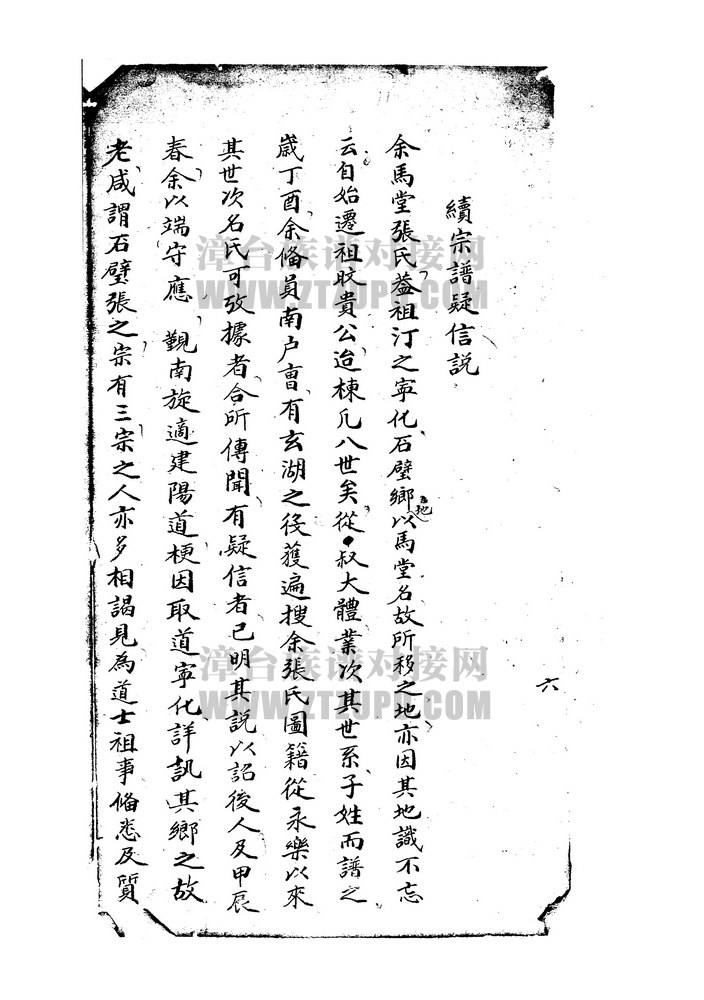 續宗譜疑信説
余馬堂張氏葢祖汀之寧化石壁鄉地以馬堂名故所移之地亦因其地識不忘
云自始遷祖旼貴公迨棟凡八世矣從叔大體業次其世系子姓而譜之
歲丁酉余偹員南户曺有玄湖之役獲遍搜余張氏圖籍從永樂以來
其世次名氏可攷據者合所傳聞有疑信者已明其説以詔後人及甲辰
春余以端守應 觐南旋適建陽道梗因取道寧化詳訊其鄉之故
老咸謂石壁張之宗有三宗之人亦多相謁見為道士祖事偹悉及質
六
漳台族谱对接网
WWW.ZTZUPU.COM
漳台族谱对接网
WWW.ZTZUPU.COM